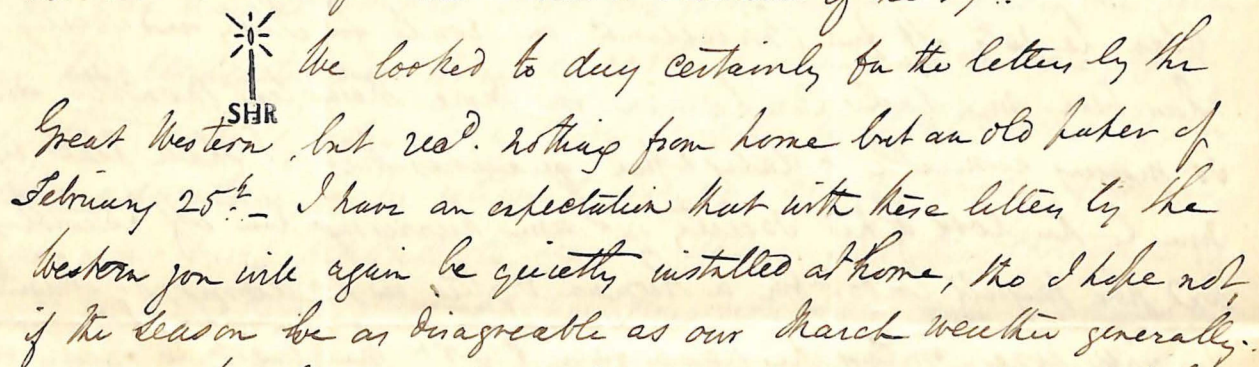 SHR
We looked to day certainly for the letters by the
Great Western, but recd. nothing from home but an old paper of
February 25th. – I have an expectation that with these letters by the
Western you will again be quietly installed at home, tho I hope not,
if the season be as disagreable as our March weather generally.